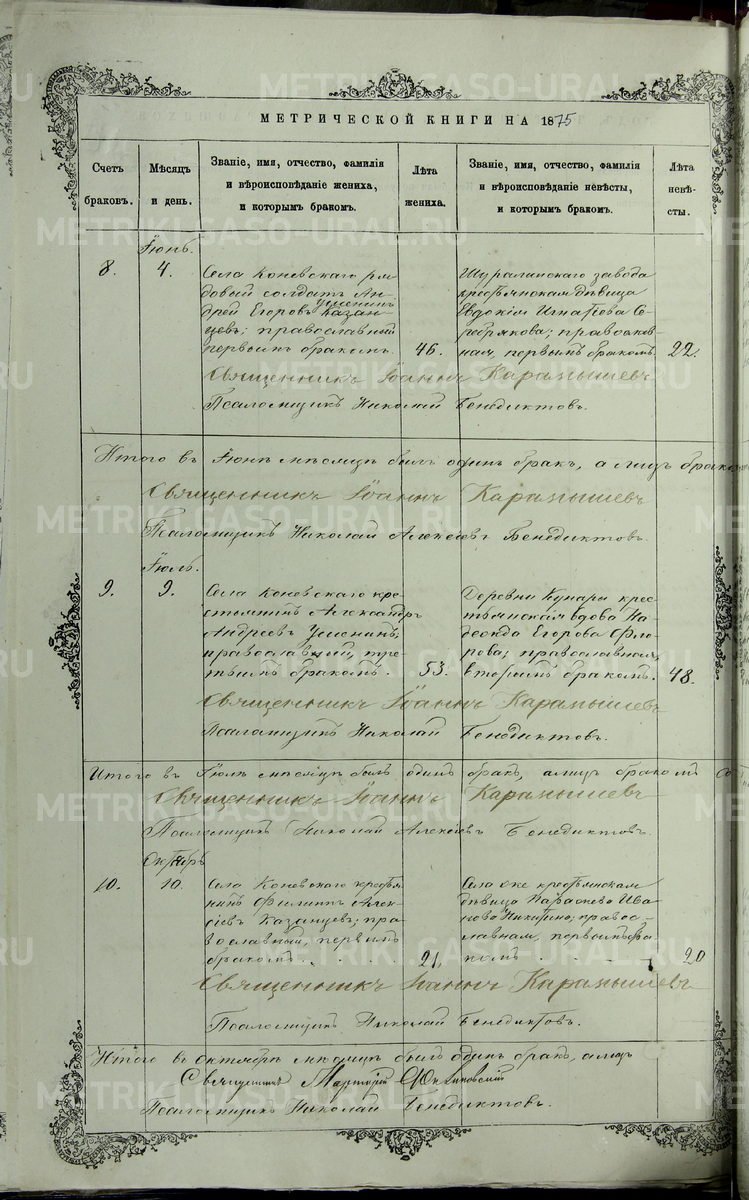 МЕТРИЧЕСКОЙ КНИГИ НА 1875
Счетъ браковъ.
Мѣсяцъ и день.
Званіе, имя, отчество, фамилія и вѣроисповѣданіе жениха, и которымъ бракомъ.
Лѣта жениха.
Званіе, имя, отчество, фамилія и вѣроисповѣданіе невѣсты, и которымъ бракомъ.
Лѣта невѣсты.
Іюнь.
8. 4.
Села Коневскаго ря-
довый солдатъ Ан-
дрей Егоровъ Казан-
цевъ; православный
первымъ бракомъ. 46.
Шуралинскаго завода
крестьянская дѣвица
Евдокія Игнатіева Се-
ребрякова; православ
ная, первымъ бракомъ. 22.
Священникъ Іоаннъ Карамышевъ
Псаломщикъ Николай Бенедиктовъ.
Итого въ Іюнѣ мѣсяцѣ былъ одинъ бракъ, а лицъ брако
Священникъ Іоаннъ Карамышевъ
Псаломщикъ Николай Алексѣевъ Бенедиктовъ.
Іюль.
9. 9.
Села Коневскаго кре-
стьянинъ Александръ
Андреевъ Усенинъ;
православный, тре-
тьимъ бракомъ. 53.
Деревни Кунары крес-
тьянская вдова На
дежда Егорова Фло-
рова; православная,
вторымъ бракомъ. 48.
Священникъ Іоаннъ Карамышевъ
Псаломщикъ Николай Бенедиктовъ.
Итого въ Іюлѣ мѣсяцѣ былъ одинъ бракъ, а лицъ бракомъ со
Священникъ Іоаннъ Карамышевъ
Псаломщикъ Николай Алексѣевъ Бенедиктовъ.
Октябрь
10. 10.
Села Коневскаго крестья
нинъ Филиппъ Алек-
сѣевъ Казанцевъ; пра-
вославный, первымъ
бракомъ. 21.
Села оке крестьянская
дѣвица Параскева Ива
нова Никитина; правос-
лавная, первымъ бра
комъ 20
Священникъ Іоаннъ Карамышевъ
Псаломщикъ Николай Бенедиктовъ.
Итого въ октябрѣ мѣсяцѣ былъ одинъ бракъ, а лицъ
Священникъ
Псаломщикъ Николай Бенедиктовъ.
METRIKI.GASO-URAL.RU